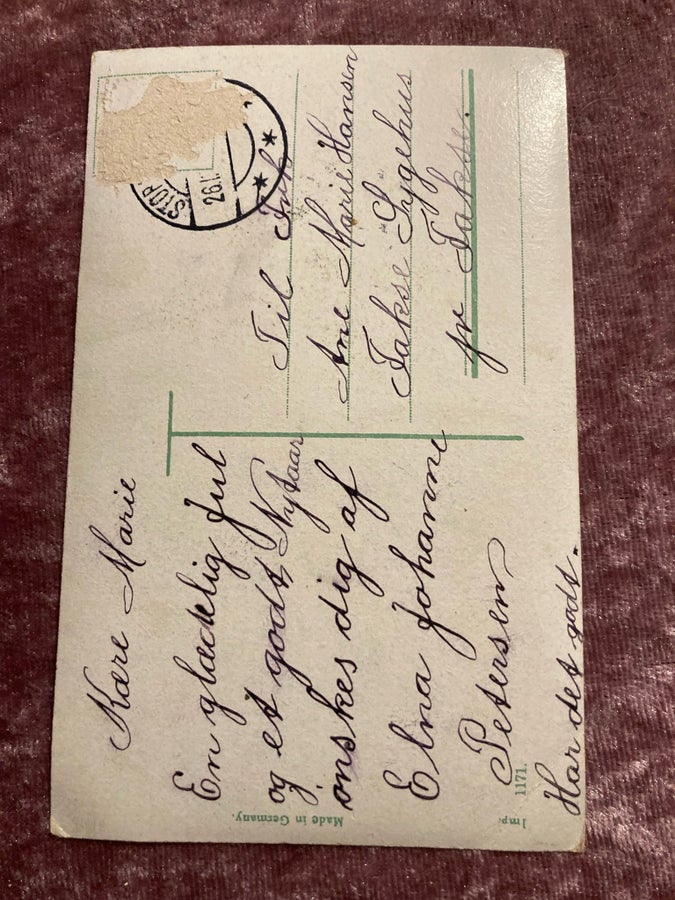 Kære Marie
En glædelig Jul
og et godt Nytaar
önskes dig af
Elna Johanne
Petersen
Har det godt.
Til
Ane Marie Hansen
Fakse Sygehus
pr Fakse.
STOR
26.1
Made in Germany.
Imp. 1171.